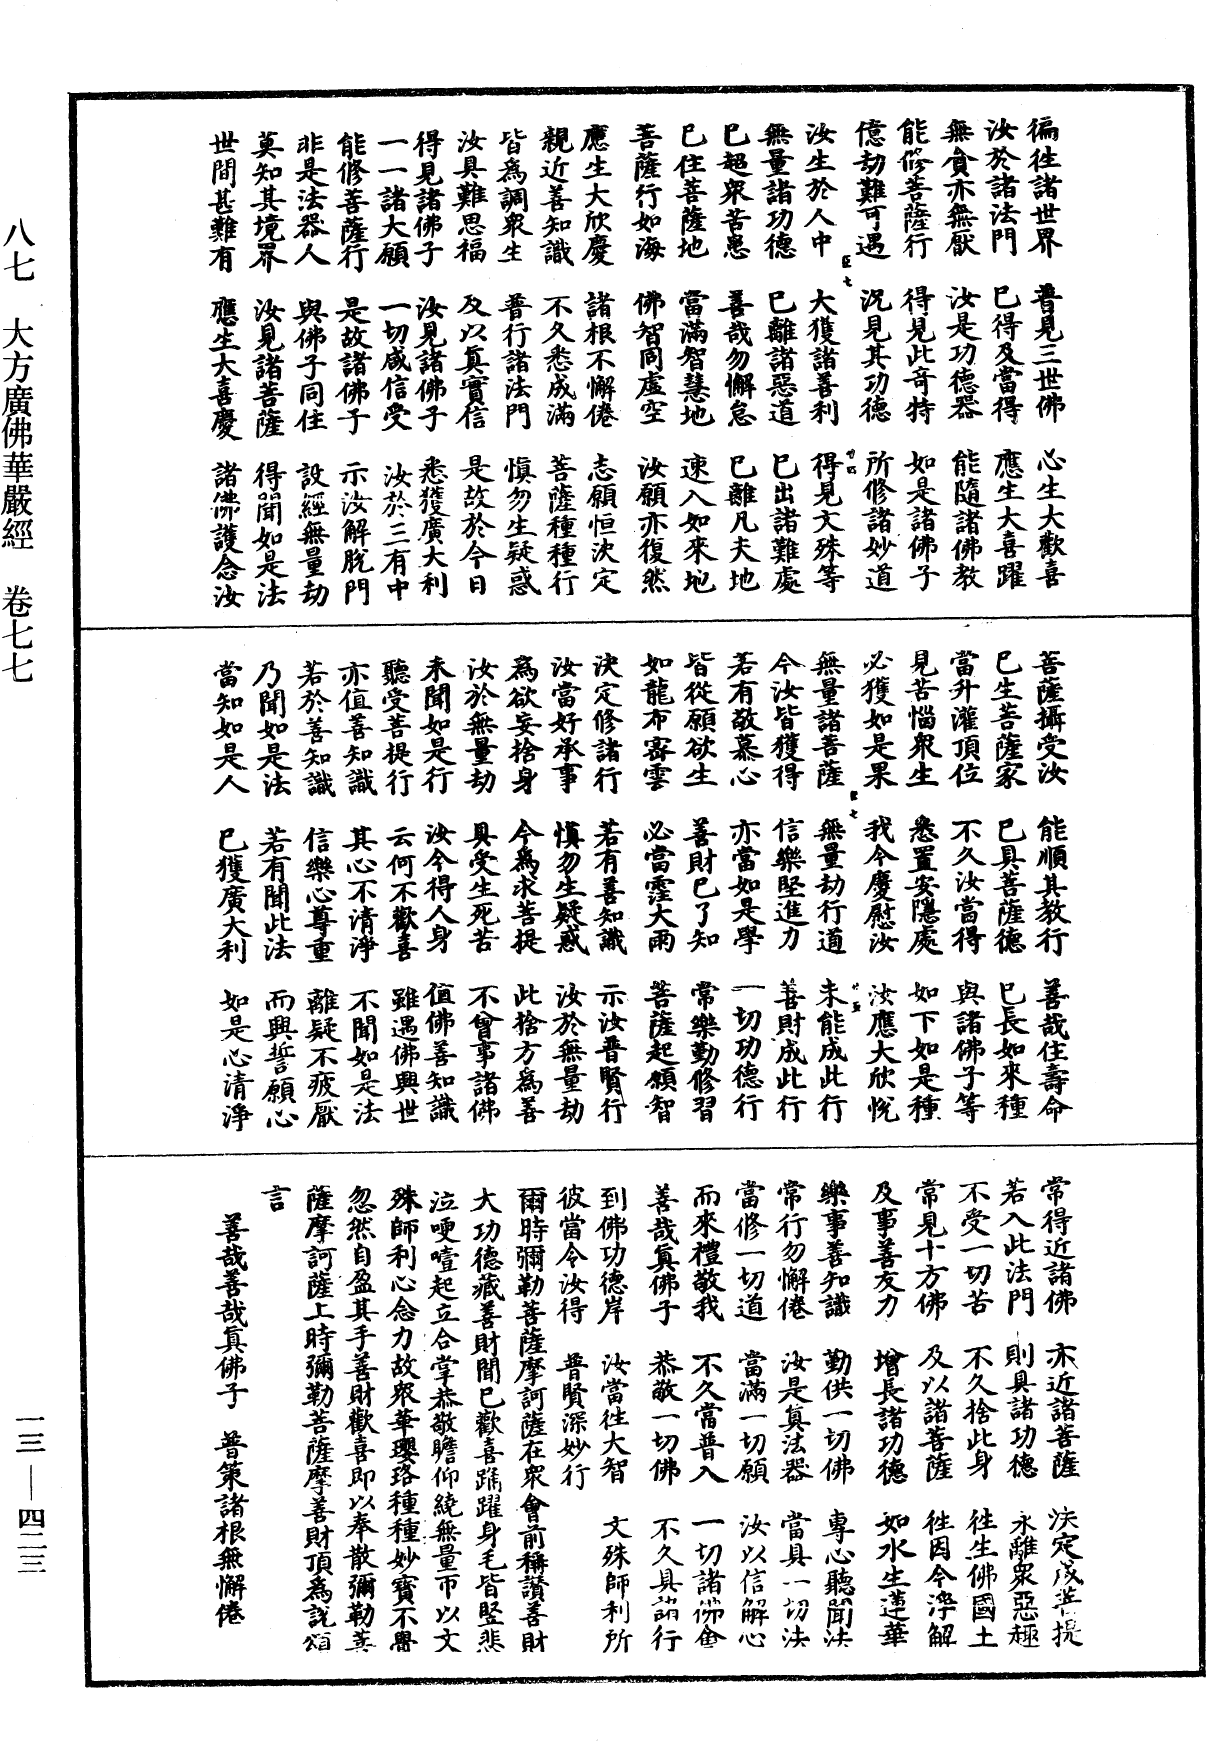 徧往諸世界　普見三世佛　心生大歡喜
汝於諸法門　已得及當得　應生大喜躍
無貪亦無厭　汝是功德器　能隨諸佛教
能修菩薩行　得見此奇特　如是諸佛子
億劫難可遇　況見其功德　所修諸妙道
汝生於人中　大獲諸善利　得見文殊等
無量諸功德　已離諸惡道　已出諸難處
已超眾苦患　善哉勿懈怠　已離凡夫地
已住菩薩地　當滿智慧地　速入如來地
菩薩行如海　佛智同虛空　汝願亦復然
應生大欣慶　諸根不懈倦　志願恒決定
親近善知識　不久悉成滿　菩薩種種行
皆為調眾生　普行諸法門　慎勿生疑惑
汝具難思福　及以真實信　是故於今日
得見諸佛子　汝見諸佛子　悉獲廣大利
一一諸大願　一切咸信受　汝於三有中
能修菩薩行　是故諸佛子　示汝解脫門
非是法器人　與佛子同住　設經無量劫
莫知其境界　汝見諸菩薩　得聞如是法
世間甚難有　應生大喜慶　諸佛護念汝
菩薩攝受汝　能順其教行　善哉住壽命
已生菩薩家　已具菩薩德　已長如來種
當升灌頂位　不久汝當得　與諸佛子等
見苦惱眾生　悉置安隱處　如下如是種
必獲如是果　我今慶慰汝　汝應大欣悅
無量諸菩薩　無量劫行道　未能成此行
今汝皆獲得　信樂堅進力　善財成此行
若有敬慕心　亦當如是學　一切功德行
皆從願欲生　善財已了知　常樂勤修習
如龍布密雲　必當霔大雨　菩薩起願智
決定修諸行　若有善知識　示汝普賢行
汝當好承事　慎勿生疑惑　汝於無量劫
為欲妄捨身　今為求菩提　此捨方為善
汝於無量劫　具受生死苦　不曾事諸佛
未聞如是行　汝今得人身　值佛善知識
聽受菩提行　云何不歡喜　雖遇佛興世
亦值善知識　其心不清淨　不聞如是法
若於善知識　信樂心尊重　離疑不疲厭
乃聞如是法　若有聞此法　而興誓願心
當知如是人　已獲廣大利　如是心清淨
常得近諸佛　亦近諸菩薩　決定成菩提
若入此法門　則具諸功德　永離眾惡趣
不受一切苦　不久捨此身　往生佛國土
常見十方佛　及以諸菩薩　往因今淨解
及事善友力　增長諸功德　如水生蓮華
樂事善知識　勤供一切佛　專心聽聞法
常行勿懈倦　汝是真法器　當具一切法
當修一切道　當滿一切願　汝以信解心
而來禮敬我　不久當普入　一切諸佛會
善哉真佛子　恭敬一切佛　不久具諸行
到佛功德岸　汝當往大智　文殊師利所
彼當令汝得　普賢深妙行
爾時彌勒菩薩摩訶薩在眾會前稱讚善財
大功德藏善財聞已歡喜踊躍身毛皆豎悲
泣哽噎起立合掌恭敬瞻仰繞無量帀以文
殊師利心念力故眾華瓔珞種種妙寶不覺
忽然自盈其手善財歡喜即以奉散彌勒菩
薩摩訶薩上時彌勒菩薩摩善財頂為說頌
言
善哉善哉真佛子　普策諸根無懈倦
八七　大方廣佛華嚴經　卷七七
一三—四二三